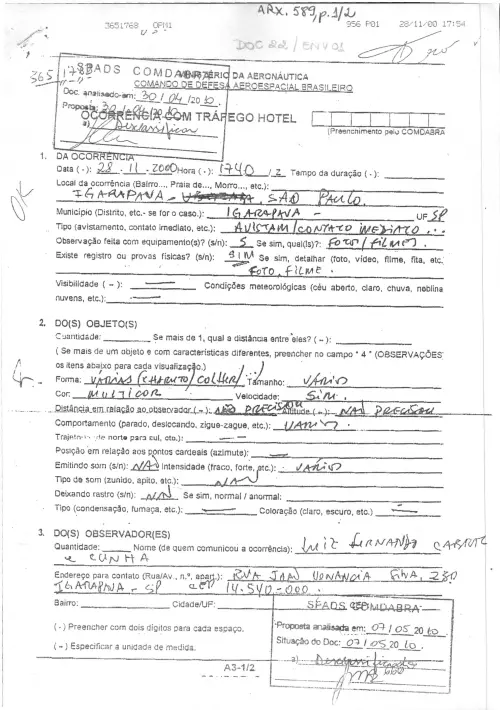 ARX. 589, p. 1/2
3651768 OPM1 956 P01 28/11/00 17:54
DOC 22 / ENV 01
SPADS COMDABRA
MINISTÉRIO DA AERONÁUTICA
COMANDO DE DEFESA AEROESPACIAL BRASILEIRO
Doc. analisado em: 30/04/2010
Proposta: 30/04/2010
a) Desclassificar
OCORRÊNCIA COM TRÁFEGO HOTEL
(Preenchimento pelo COMDABRA)
OK
1. DA OCORRÊNCIA
Data (·): 28.11.2000 Hora (·): 1740 /Z Tempo da duração (·):
Local da ocorrência (Bairro..., Praia de..., Morro..., etc.):
IGARAPAVA - SÃO PAULO.
Município (Distrito, etc.- se for o caso.): IGARAPAVA - UF SP
Tipo (avistamento, contato imediato, etc.): AVISTAM/CONTATO IMEDIATO ...
Observação feita com equipamento(s)? (s/n): S Se sim, qual(is)?: FOTO / FILME
Existe registro ou provas físicas? (s/n): SIM Se sim, detalhar (foto, vídeo, filme, fita, etc.
FOTO, FILME.
Visibilidade ( – ): Condições meteorológicas (céu aberto, claro, chuva, neblina
nuvens, etc.):
2. DO(S) OBJETO(S)
Quantidade: Se mais de 1, qual a distância entre eles? ( – ):
( Se mais de um objeto e com características diferentes, preencher no campo " 4 " (OBSERVAÇÕES
os itens abaixo para cada visualização.)
Forma: VARIAS (CHARUTO/COLHER/ Tamanho: VÁRIOS
Cor: MULTICOR Velocidade: SIM.
Distância em relação ao observador ( – ): NÃO PRECISOU Altitude ( – ): NÃO PRECISOU
Comportamento (parado, deslocando, zigue-zague, etc.): VARIOS.
Trajetória de norte para sul, etc.):
Posição em relação aos pontos cardeais (azimute):
Emitindo som (s/n): NÃO Intensidade (fraco, forte, etc.): VÁRIOS
Tipo de som (zunido, apito, etc.): NÃO
Deixando rastro (s/n): NÃO Se sim, normal / anormal:
Tipo (condensação, fumaça, etc.): Coloração (claro, escuro, etc.)
3. DO(S) OBSERVADOR(ES)
Quantidade: Nome (de quem comunicou a ocorrência): LUIZ FERNANDO
E CUNHA
Endereço para contato (Rua/Av., n.º, apart.): RUA
IGARAPAVA - SP CEP 14.540-000.
Bairro: Cidade/UF:
(·) Preencher com dois dígitos para cada espaço.
( – ) Especificar a unidade de medida.
SPADS COMDABRA
Proposta analisada em: 07/05/2010
Situação do Doc: 07/05/2010
a) Desclassificado
A3-1/2